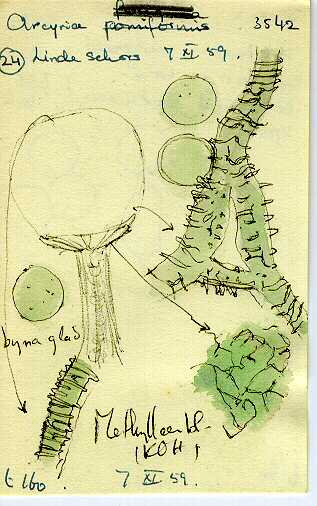 Arcyria pomiformis 3542
24 Linde schors 7 XI 59.
byna glad
Methyl
(KOH)
6160. 7 XI 59.